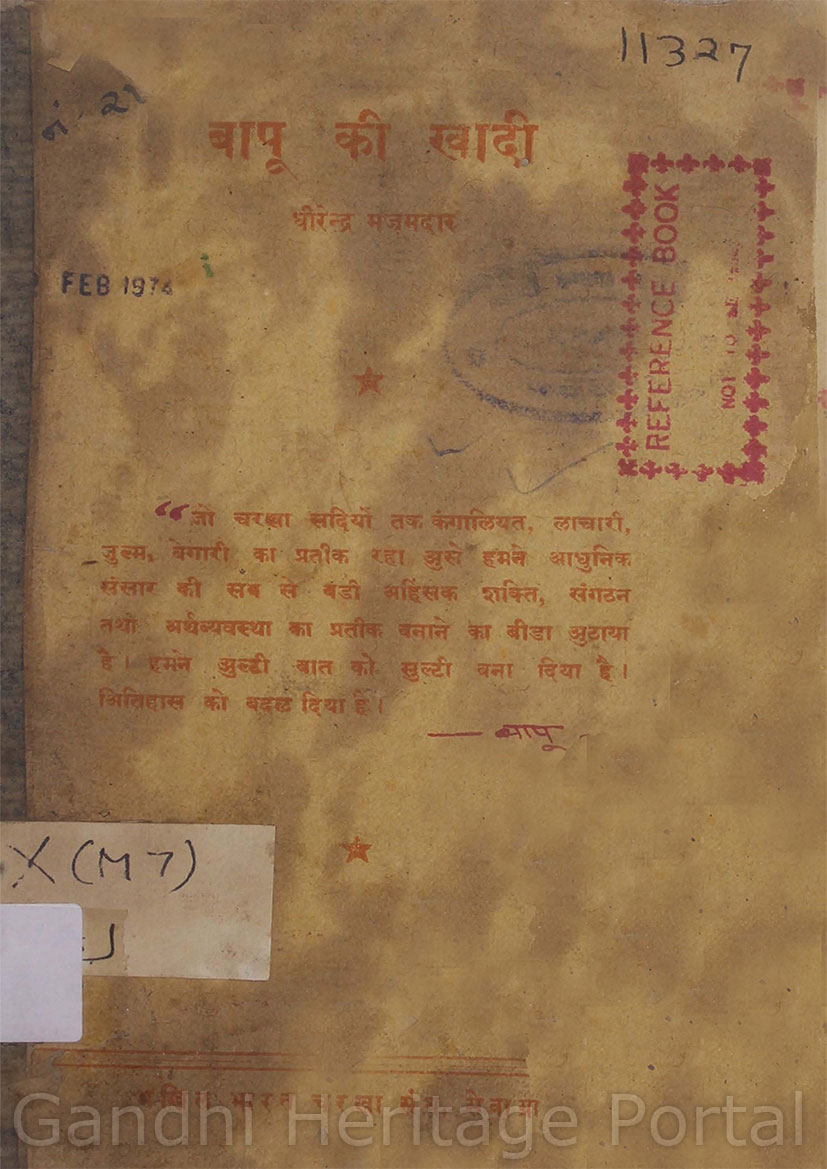 11327
नं. 21
बापू की खादी
धीरेन्द्र मजूमदार
FEB 1974
REFERENCE BOOK
NOT TO BE
“जो चरखा सदियों तक कंगालियत, लाचारी,
जुल्म, बेगारी का प्रतीक रहा अुसे हमने आधुनिक
संसार की सब से बडी अहिंसक शक्ति, संगठन
तथा अर्थव्यवस्था का प्रतीक बनाने का बीडा अुठाया
है। हमने अुल्टी बात को सुल्टी बना दिया है।
अितिहास को बदल दिया है।
— बापू
X (M 7)
J
अखिल भारत चरखा संघ सेवाग्राम
Gandhi Heritage Portal